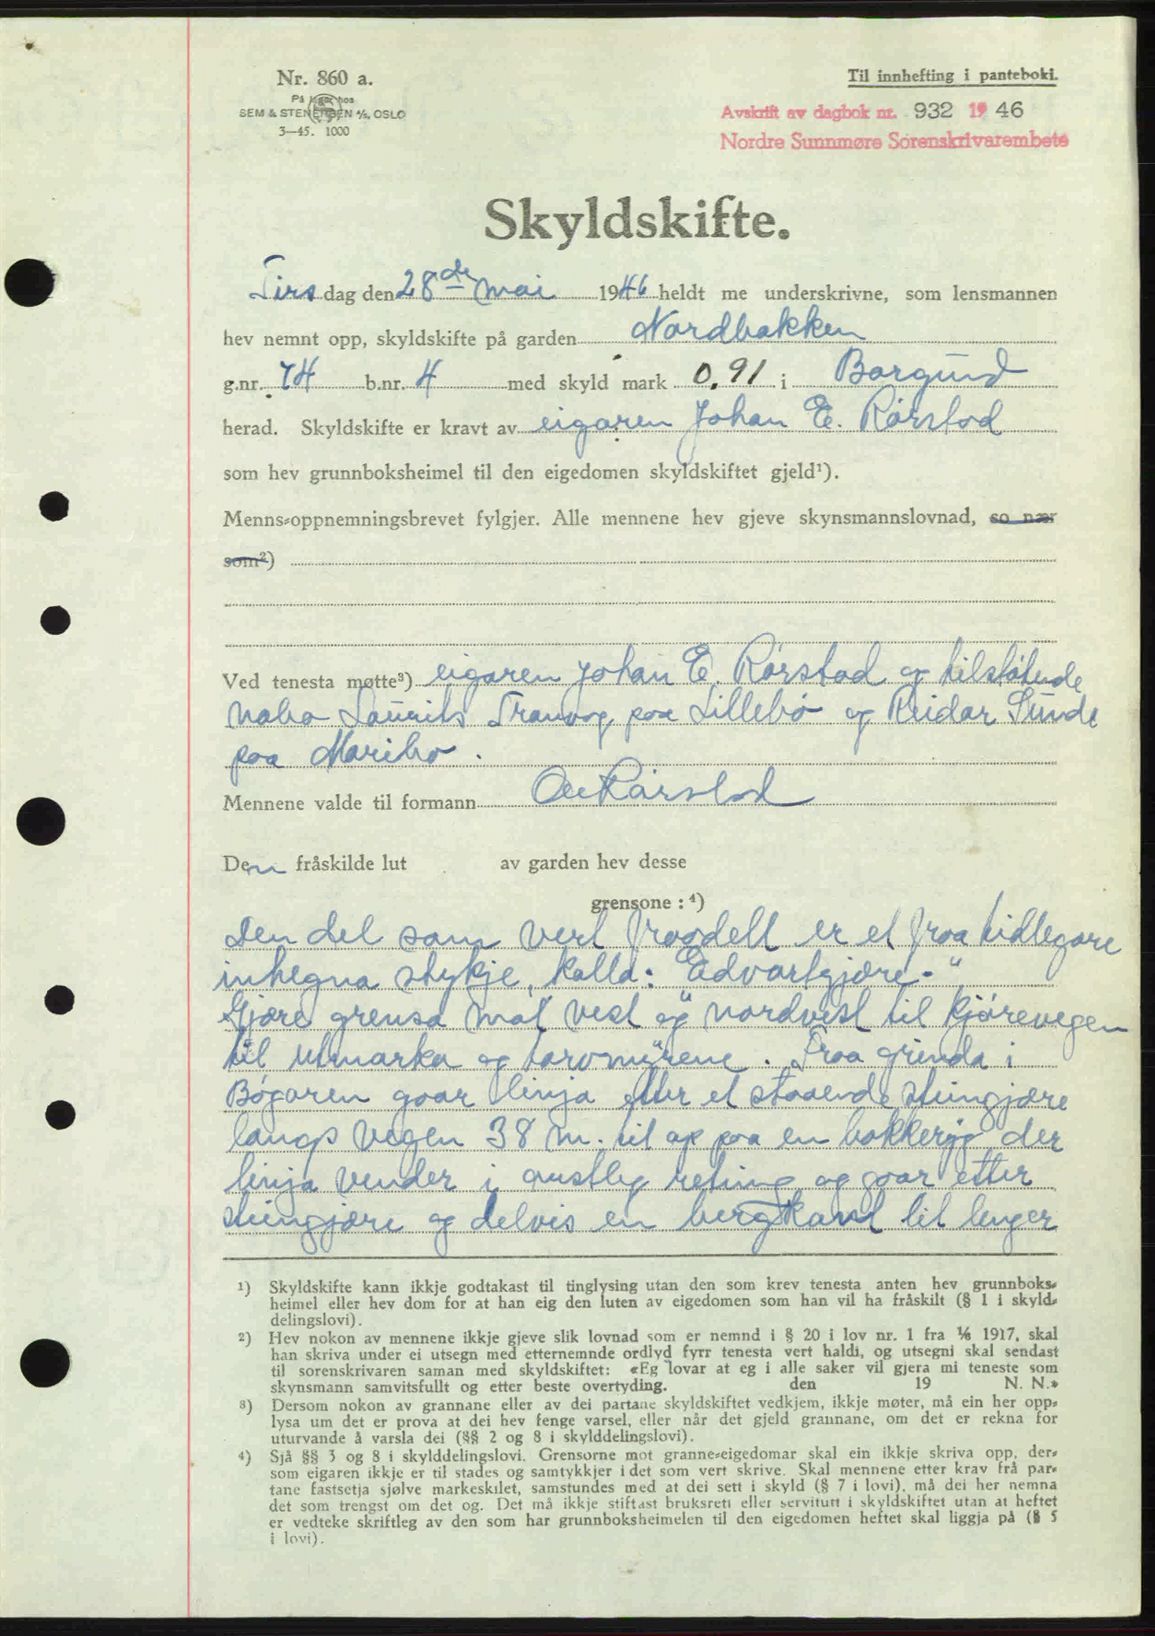 Nr. 860 a.
Til innhefting i panteboki.
På lager hos
SEM & STENERSEN A/S, OSLO
3—45. 1000
Avskrift av dagbok nr. 932 1946
Nordre Sunnmøre Sorenskrivarembete
Skyldskifte.
Tirsdag den 28de mai 1946 heldt me underskrivne, som lensmannen
hev nemnt opp, skyldskifte på garden Nordbakken
g.nr. 74 b.nr. 4 med skyld mark 0,91 i Borgund
herad. Skyldskifte er kravt av eigaren Johan E. Rørstad
som hev grunnboksheimel til den eigedomen skyldskiftet gjeld¹).
Menns-oppnemningsbrevet fylgjer. Alle mennene hev gjeve skynsmannslovnad, so nær
som²)
Ved tenesta møtte³) eigaren Johan E. Rørstad og tilstøtende
nabo Laurits Tranvog paa Lillebø og Reidar Sunde
paa Maribo.
Mennene valde til formann Ole Rørstad
Den fråskilde lut av garden hev desse
grensone : ⁴)
Den del som vert fraadelt er et fraa tidlegare
inhegna stykje, kalla: "Edvartgjære."
Gjære grensa mot vest og nordvest til kjørevegen
til utmarka og torvmyrene. Fraa grinda i
Bøgaren goar linja etter et staaende steingjære
langs vegen 38 m. til op paa en bakkeryg der
linja vender i austleg retning og goar etter
steingjære og delvis en bergkant lit lenger
¹) Skyldskifte kann ikkje godtakast til tinglysing utan den som krev tenesta anten hev grunnboks-
heimel eller hev dom for at han eig den luten av eigedomen som han vil ha fråskilt (§ 1 i skyld-
delingslovi).
²) Hev nokon av mennene ikkje gjeve slik lovnad som er nemnd i § 20 i lov nr. 1 fra 1/6 1917, skal
han skriva under ei utsegn med etternemnde ordlyd fyrr tenesta vert haldi, og utsegni skal sendast
til sorenskrivaren saman med skyldskiftet: «Eg lovar at eg i alle saker vil gjera mi teneste som
skynsmann samvitsfullt og etter beste overtyding. den 19 N. N.»
³) Dersom nokon av grannane eller av dei partane skyldskiftet vedkjem, ikkje møter, må ein her opp-
lysa um det er prova at dei hev fenge varsel, eller når det gjeld grannane, om det er rekna for
uturvande å varsla dei (§§ 2 og 8 i skylddelingslovi).
⁴) Sjå §§ 3 og 8 i skylddelingslovi. Grensorne mot granne-eigedomar skal ein ikkje skriva opp, der-
som eigaren ikkje er til stades og samtykkjer i det som vert skrive. Skal mennene etter krav frå par-
tane fastsetja sjølve markeskilet, samstundes med at dei sett i skyld (§ 7 i lovi), må dei her nemna
det som trengst om det og. Det må ikkje stiftast bruksrett eller servitutt i skyldskiftet utan at heftet
er vedteke skriftleg av den som har grunnboksheimelen til den eigedomen heftet skal liggja på (§ 5
i lovi).